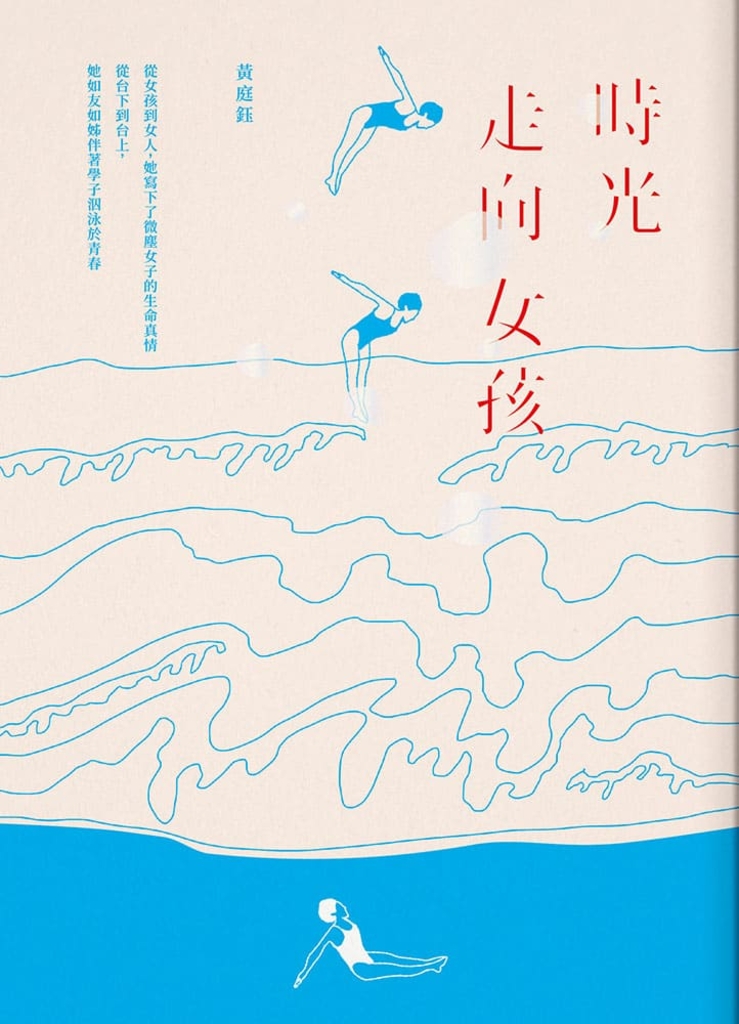 時光
走向女孩
黃庭鈺
從女孩到女人，她寫下了微塵女子的生命真情
從台下到台上，
她如友如姊伴著學子泅泳於青春